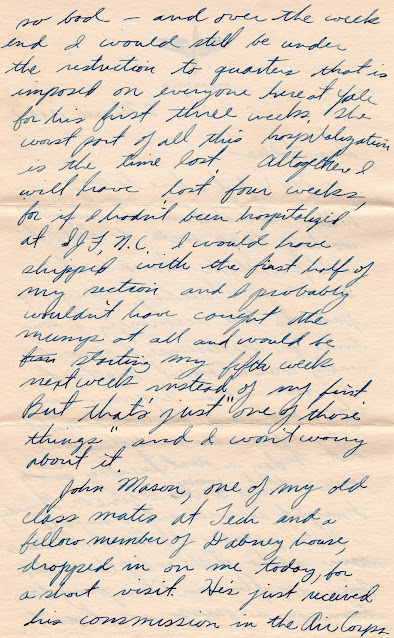 so bad – and over the week
end I would still be under
the restriction to quarters that is
imposed on everyone here at Yale
for his first three weeks. The
worst part of all this hospitalization
is the time lost. Altogether I
will have lost four weeks,
for if I hadn't been hospitalized
at SJF, N.C. I would have
shipped with the first half of
my section and I probably
wouldn't have caught the
mumps at all and would be
starting my fifth week
next week instead of my first.
But that's just "one of those
things" and I won't worry
about it.
John Mason, one of my old
class mates at Tech and a
fellow member of Dabney house,
dropped in on me today, for
a short visit. He's just received
his commission in the Air Corps